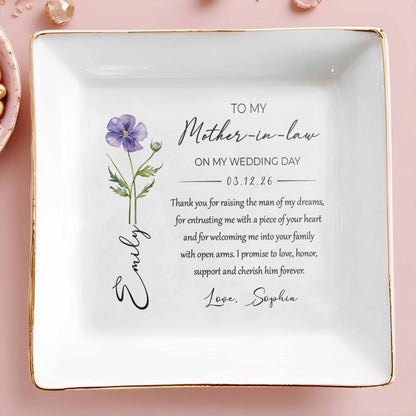 TO MY
Mother-in-law
ON MY WEDDING DAY
03.12.26
Thank you for raising the man of my dreams,
for entrusting me with a piece of your heart
and for welcoming me into your family
with open arms. I promise to love, honor,
support and cherish him forever.
Love, Sophia
Emily